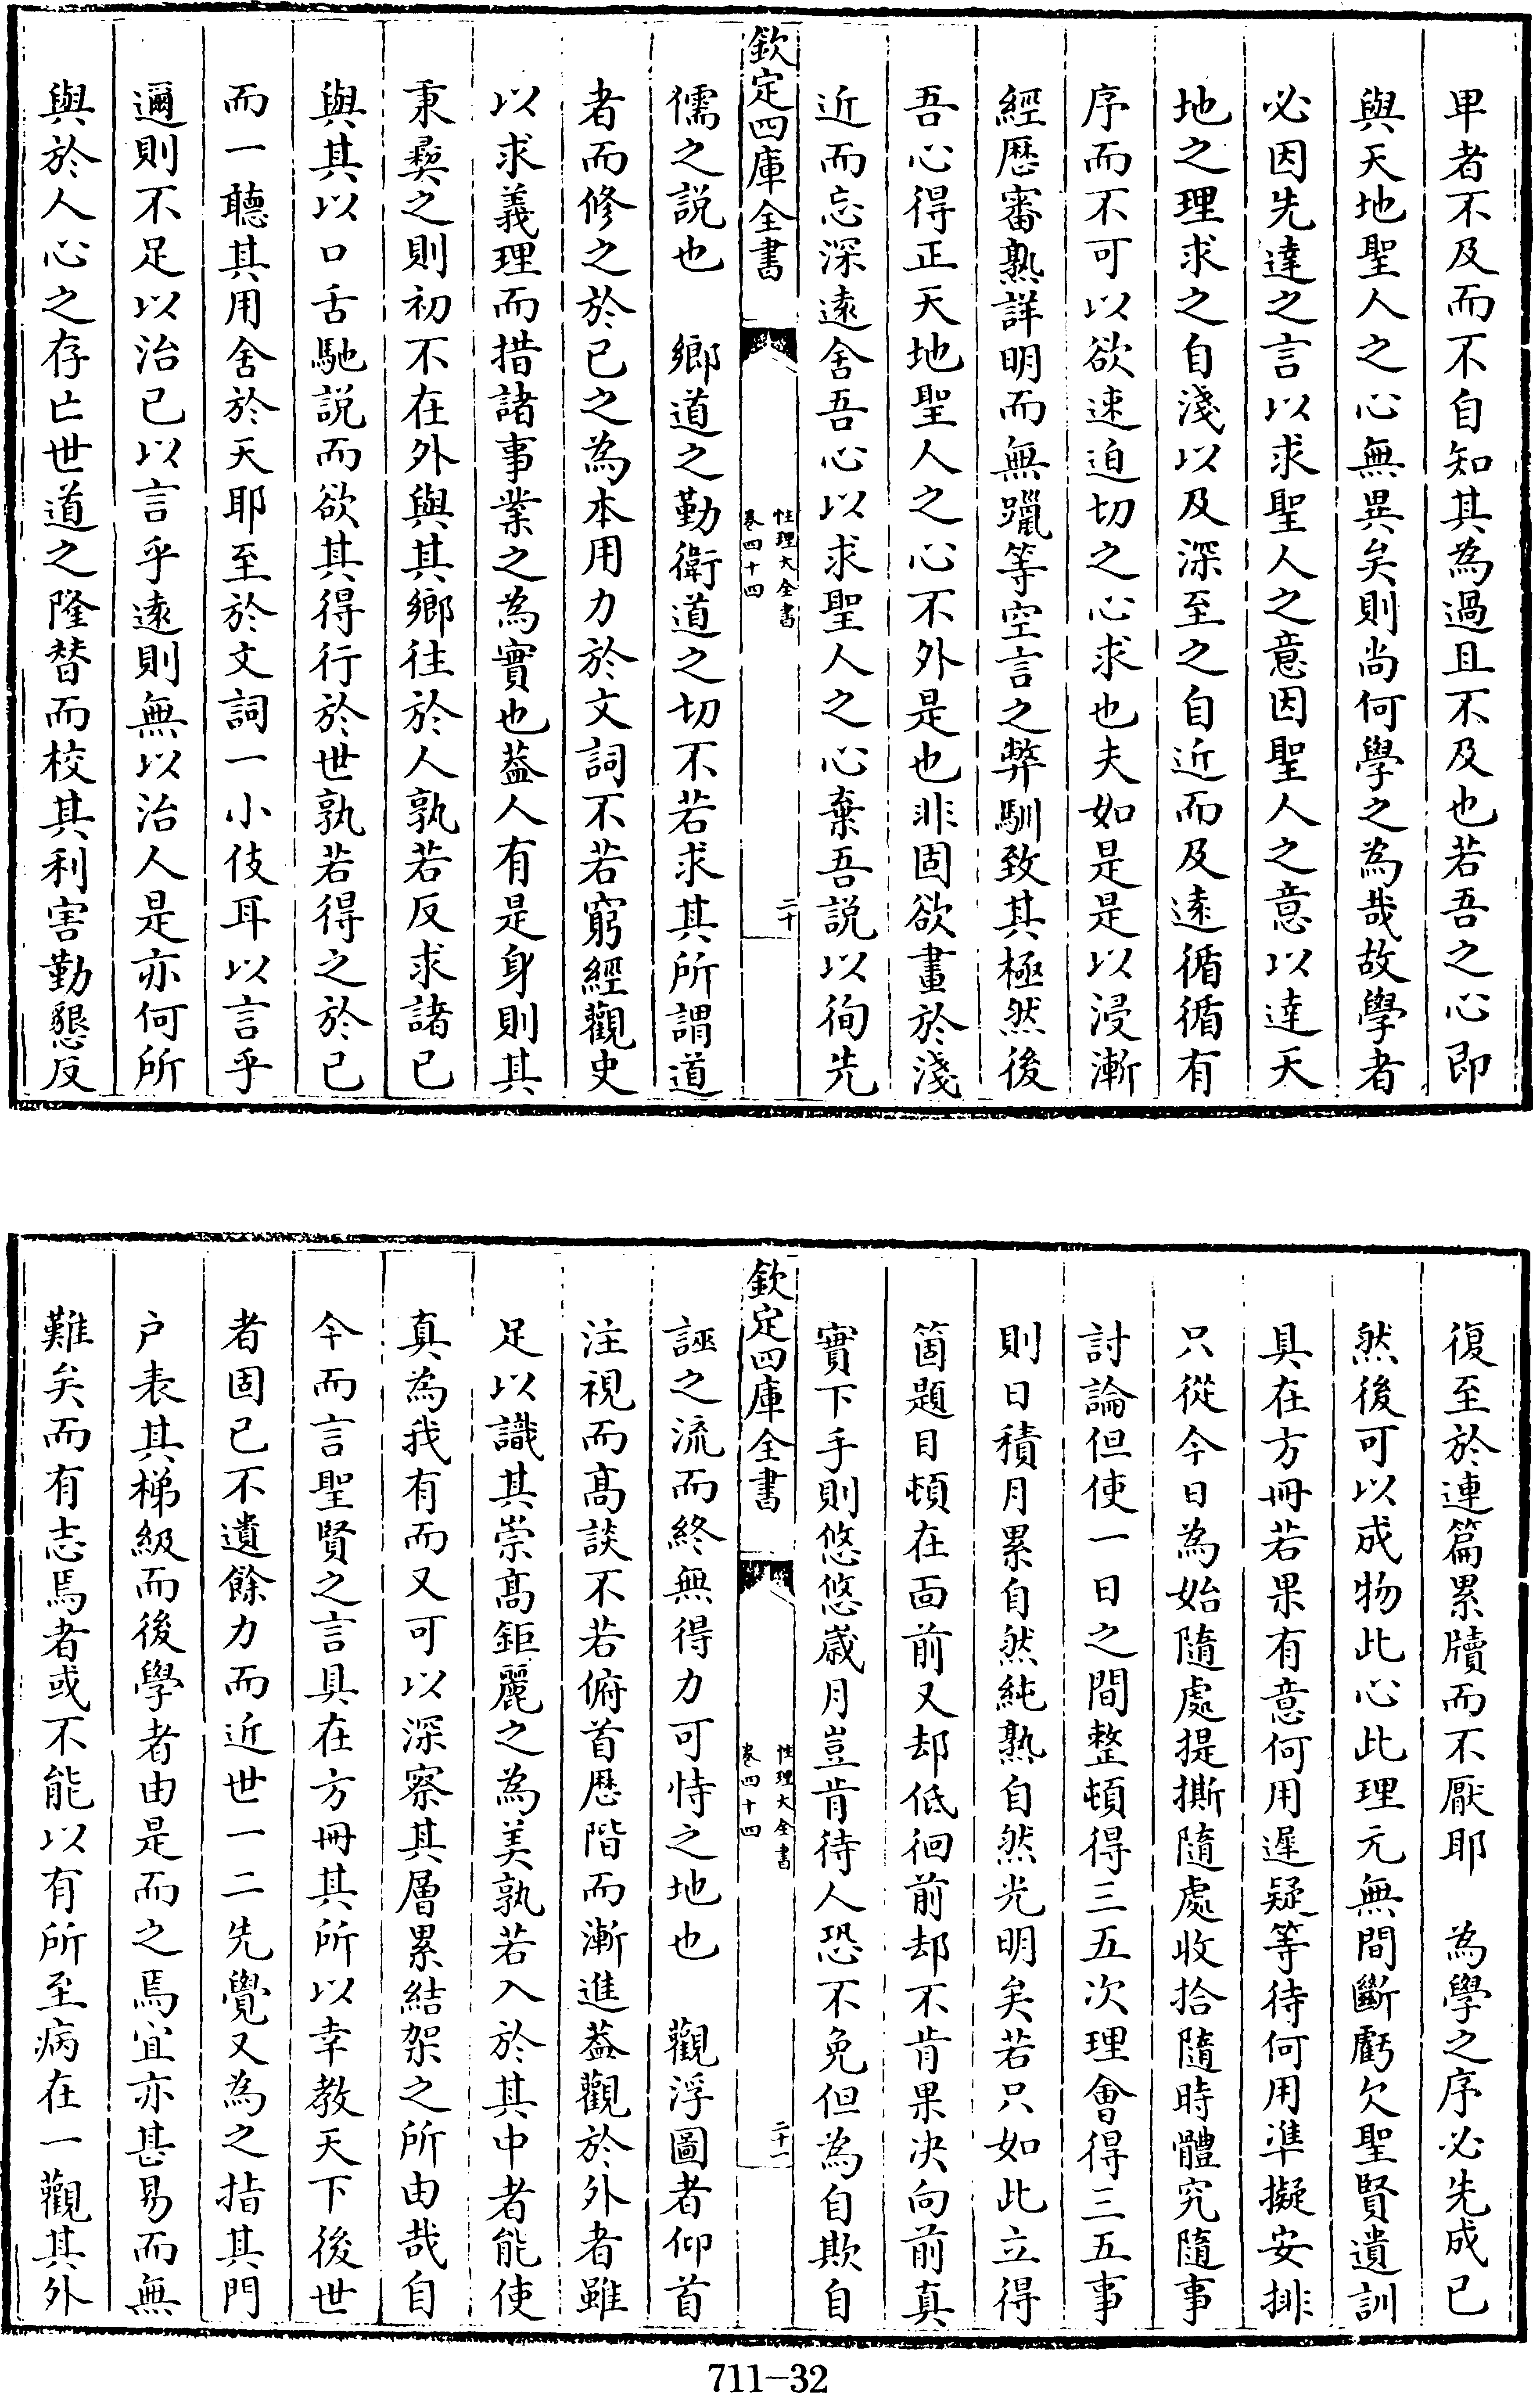 卑者不及而不自知其為過且不及也若吾之心即
與天地聖人之心無異矣則尚何學之為哉故學者
必因先達之言以求聖人之意因聖人之意以達天
地之理求之自淺以及深至之自近而及逺循循有
序而不可以欲速迫切之心求也夫如是是以浸漸
經歷審熟詳明而無躐等空言之弊馴致其極然後
吾心得正天地聖人之心不外是也非固欲畫於淺
近而忘深逺舍吾心以求聖人之心棄吾説以徇先
欽定四庫全書
性理大全書
卷四十四
二十
儒之説也　鄉道之勤衛道之切不若求其所謂道
者而修之於已之為本用力於文詞不若窮經觀史
以求義理而措諸事業之為實也葢人有是身則其
秉彛之則初不在外與其鄉往於人孰若反求諸已
與其以口舌馳説而欲其得行於世孰若得之於已
而一聽其用舍於天耶至於文詞一小伎耳以言乎
邇則不足以治已以言乎逺則無以治人是亦何所
與於人心之存亡世道之隆替而校其利害勤懇反
復至於連篇累牘而不厭耶　為學之序必先成已
然後可以成物此心此理元無間斷虧欠聖賢遺訓
具在方冊若果有意何用遲疑等待何用準擬安排
只從今日為始隨處提撕隨處收拾隨時體究隨事
討論但使一日之間整頓得三五次理會得三五事
則日積月累自然純熟自然光明矣若只如此立得
箇題目頓在面前又却低徊前却不肯果决向前真
實下手則悠悠歳月豈肯待人恐不免但為自欺自
欽定四庫全書
性理大全書
卷四十四
二十一
誣之流而終無得力可恃之地也　觀浮圖者仰首
注視而髙談不若俯首歴階而漸進葢觀於外者雖
足以識其崇髙鉅麗之為美孰若入於其中者能使
真為我有而又可以深察其層累結架之所由哉自
今而言聖賢之言具在方冊其所以幸教天下後世
者固已不遺餘力而近世一二先覺又為之指其門
户表其梯級而後學者由是而之焉宜亦甚易而無
難矣而有志焉者或不能以有所至病在一觀其外
711-32